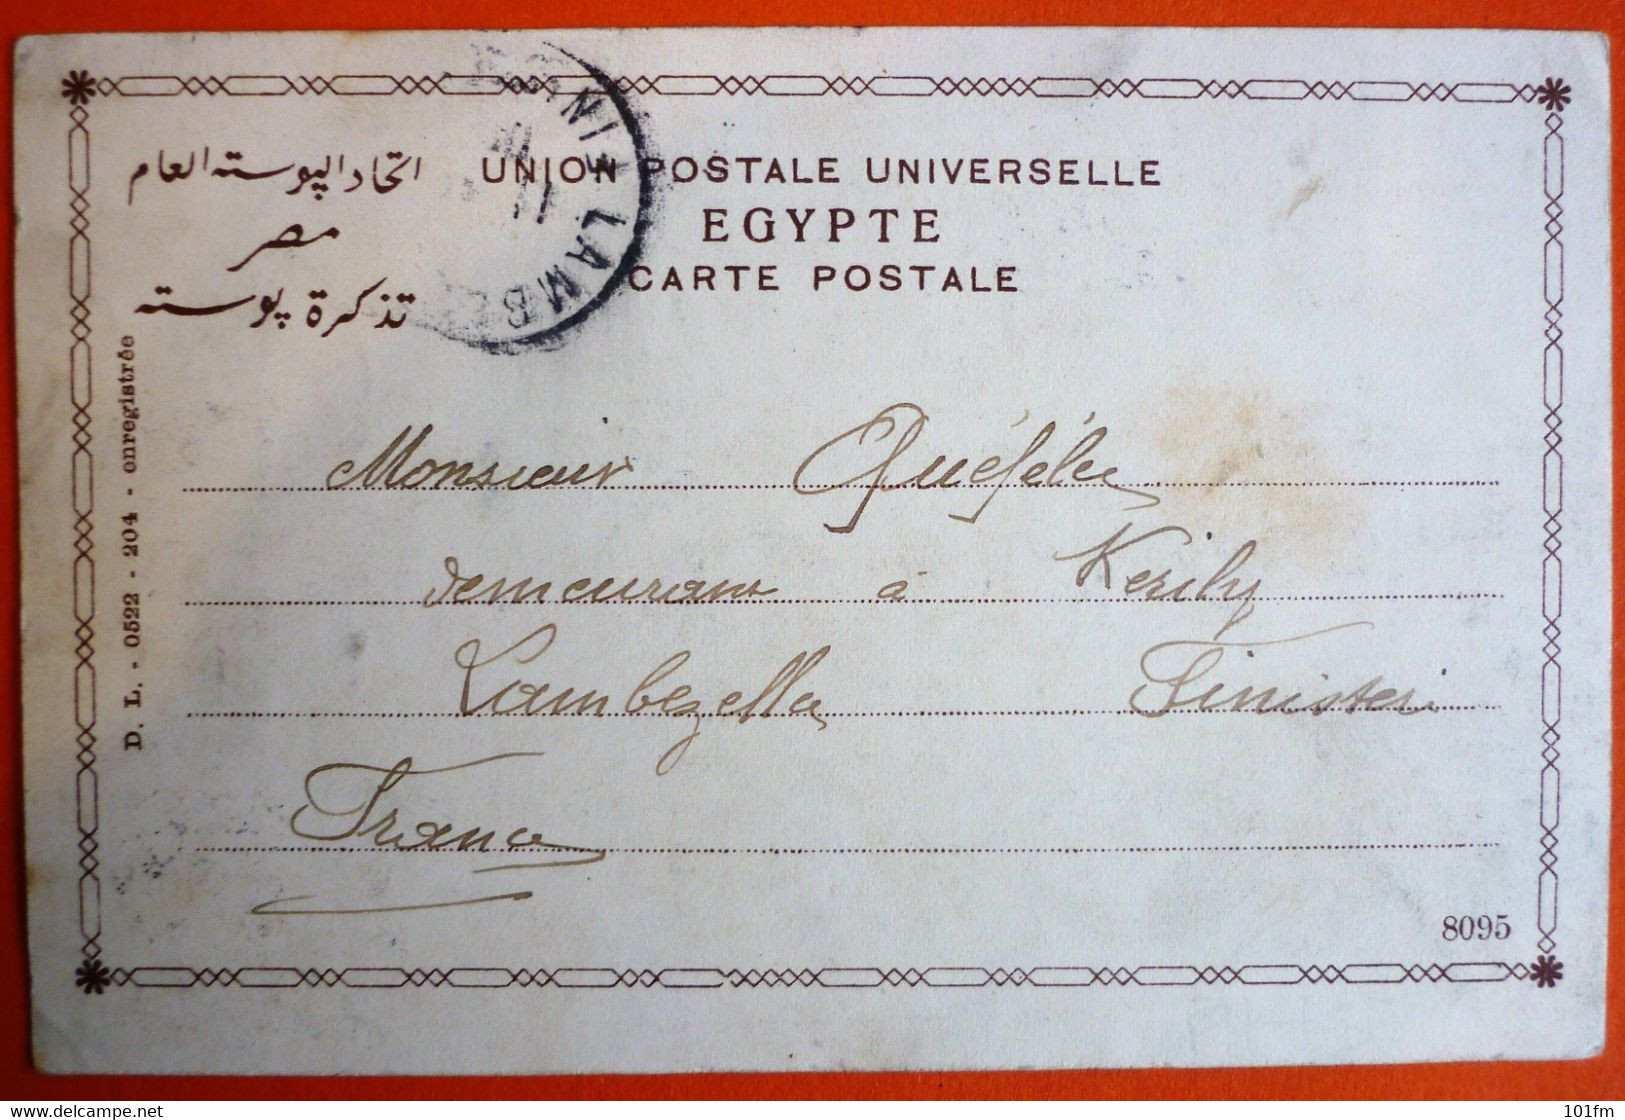 اتحاد البوسته العام
مصر
تذكرة پوسته
UNION POSTALE UNIVERSELLE
EGYPTE
CARTE POSTALE
LAMB
D. L. - 0522 - 204 - enregistrée
Monsieur Quéfélec
demeurant à
Lambezellec Finistère
France
8095
delcampe.net
101fm